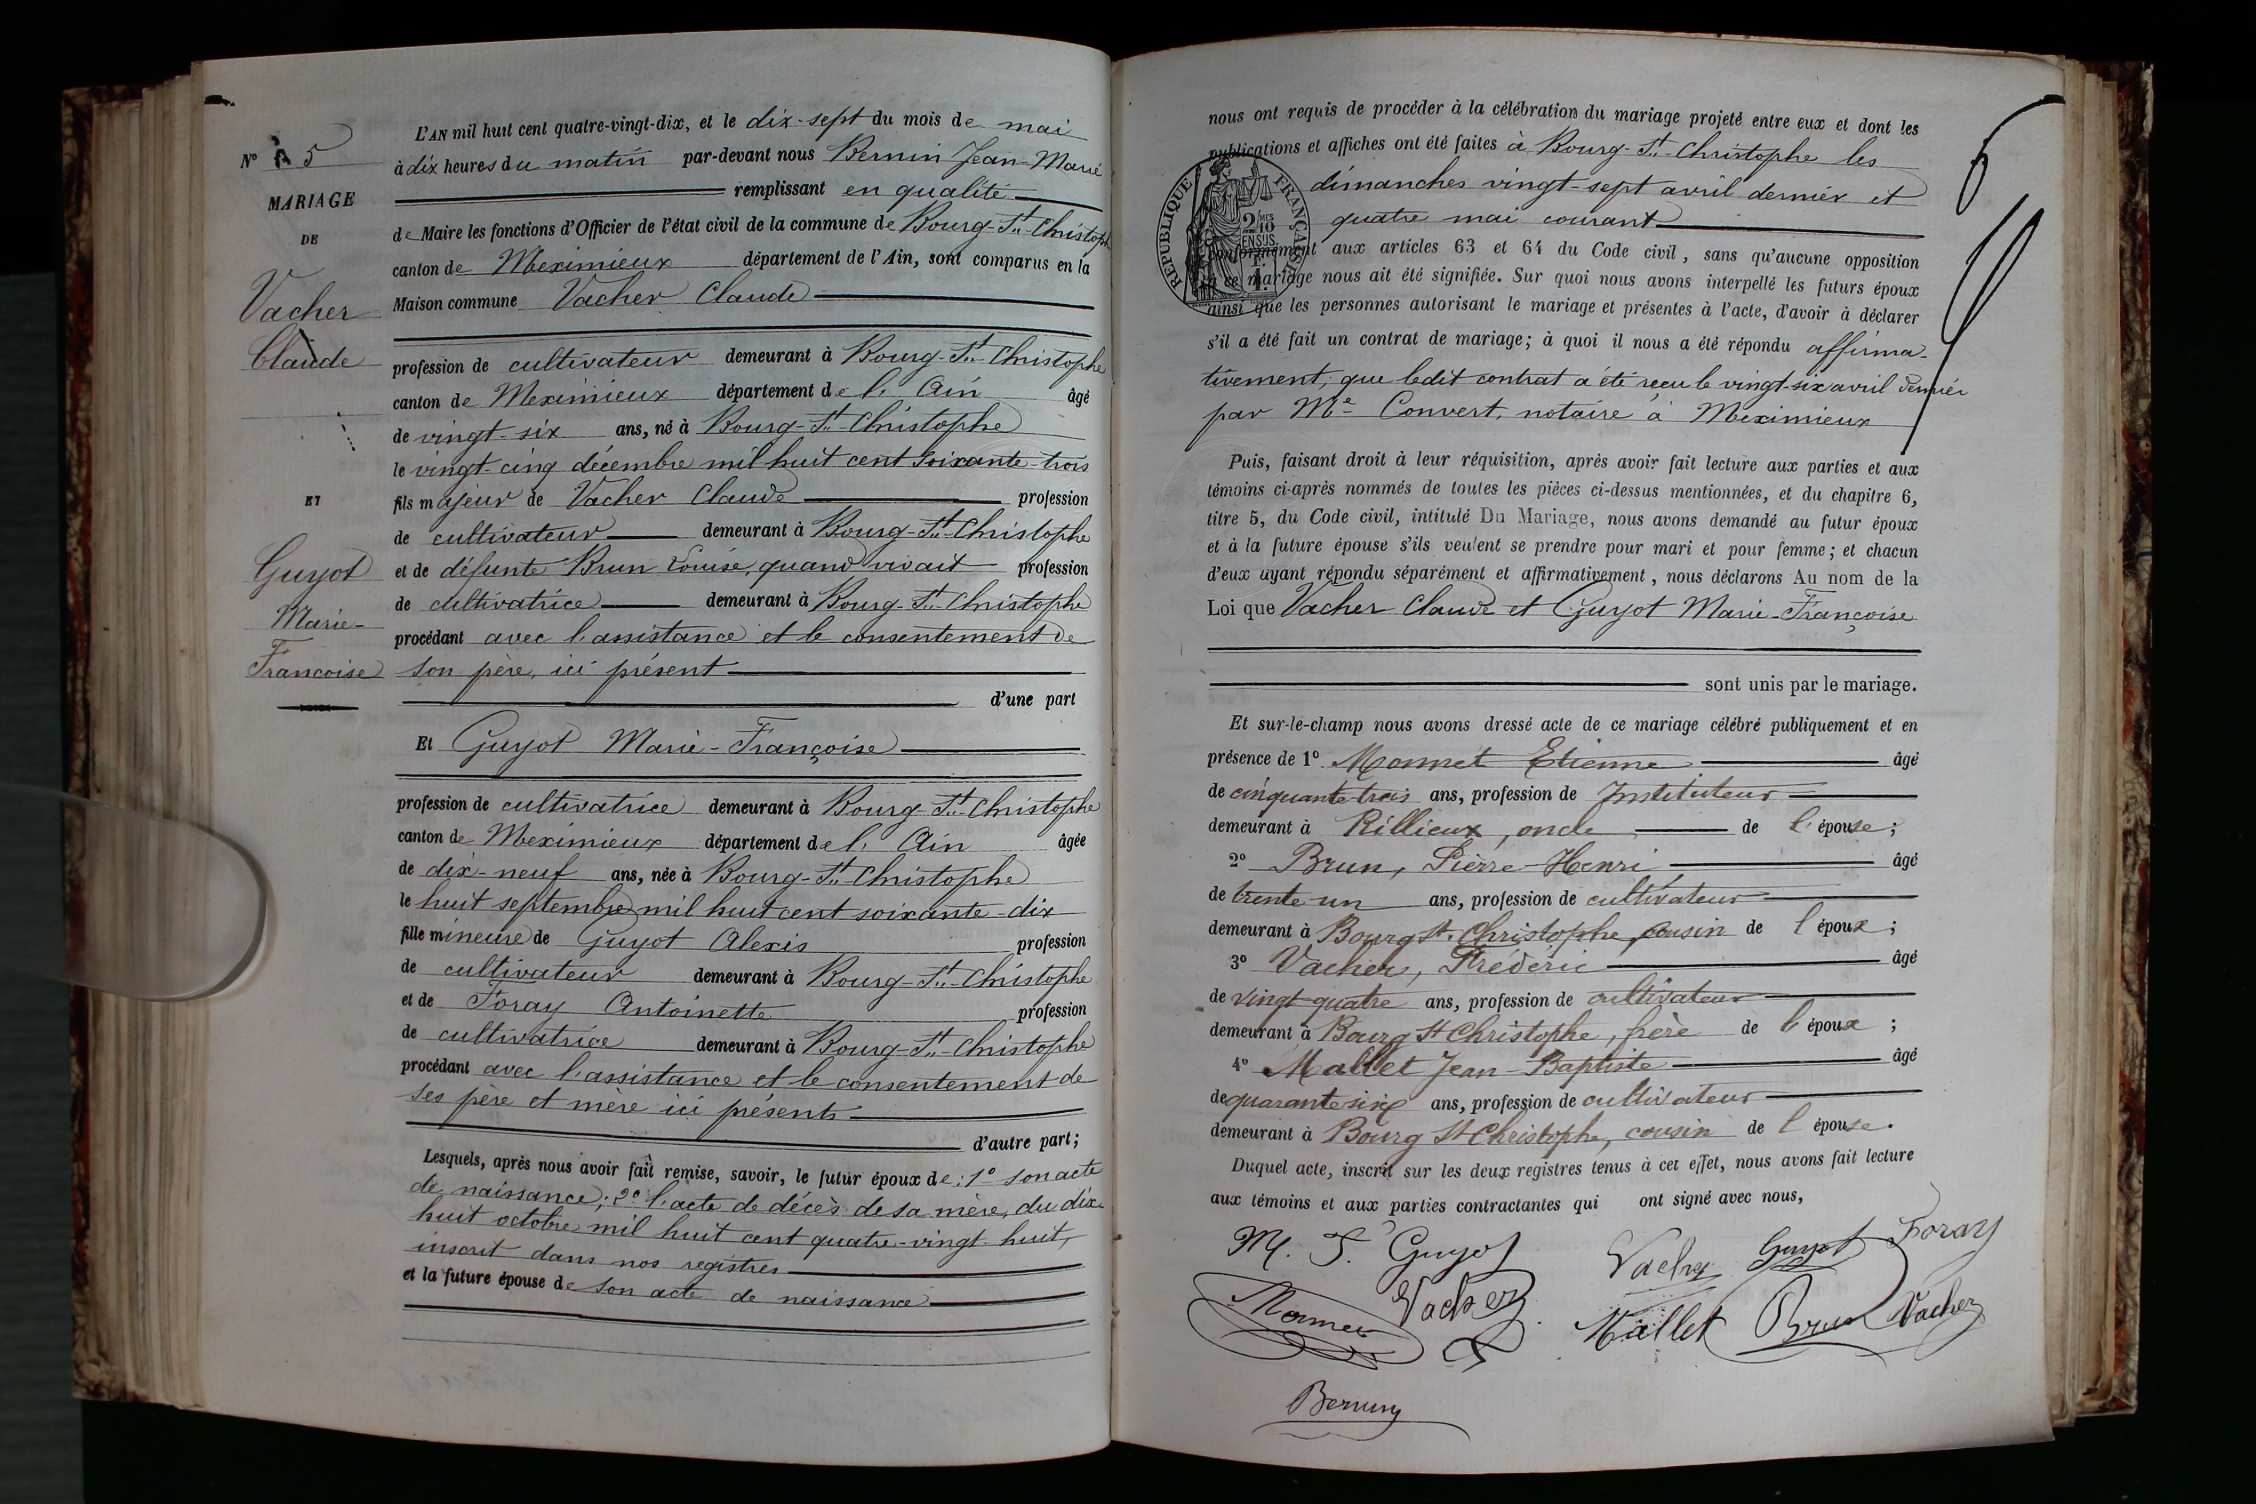 N° 5
MARIAGE
DE
Vacher
Claude
ET
Guyot
Marie-
Francoise
L'AN mil huit cent quatre-vingt-dix, et le dix-sept du mois de mai
à dix heures du matin par-devant nous Bernin Jean-Marie
remplissant en qualité
de Maire les fonctions d'Officier de l'état civil de la commune de Bourg-St-Christophe
canton de Meximieux département de l'Ain, sont comparus en la
Maison commune Vacher Claude
profession de cultivateur demeurant à Bourg-St-Christophe
canton de Meximieux département de l'Ain âgé
de vingt-six ans, né à Bourg-St-Christophe
le vingt-cinq décembre mil huit cent soixante-trois
fils majeur de Vacher Claude profession
de cultivateur demeurant à Bourg-St-Christophe
et de défunte Brun Louise, quand vivait profession
de cultivatrice demeurant à Bourg-St-Christophe
procédant avec l'assistance et le consentement de
son père, ici présent
d'une part
Et Guyot Marie-Françoise
profession de cultivatrice demeurant à Bourg-St-Christophe
canton de Meximieux département de l'Ain âgée
de dix-neuf ans, née à Bourg-St-Christophe
le huit septembre mil huit cent soixante-dix
fille mineure de Guyot Alexis profession
de cultivateur demeurant à Bourg-St-Christophe
et de Foray Antoinette profession
de cultivatrice demeurant à Bourg-St-Christophe
procédant avec l'assistance et le consentement de
ses père et mère ici présents
d'autre part;
Lesquels, après nous avoir fait remise, savoir, le futur époux de: 1° son acte
de naissance; 2° l'acte de décès de sa mère, du dix-
huit octobre mil huit cent quatre-vingt-huit,
inscrit dans nos registres
et la future épouse de son acte de naissance
nous ont requis de procéder à la célébration du mariage projeté entre eux et dont les
publications et affiches ont été faites à Bourg-St-Christophe les
dimanches vingt-sept avril dernier et
quatre mai courant
RÉPUBLIQUE FRANÇAISE
2 MES
10
EN SUS
conformément aux articles 63 et 64 du Code civil, sans qu'aucune opposition
à ce mariage nous ait été signifiée. Sur quoi nous avons interpellé les futurs époux
ainsi que les personnes autorisant le mariage et présentes à l'acte, d'avoir à déclarer
s'il a été fait un contrat de mariage; à quoi il nous a été répondu affirma-
tivement, que ledit contrat a été reçu le vingt-six avril dernier
par Me Convert, notaire à Meximieux
Puis, faisant droit à leur réquisition, après avoir fait lecture aux parties et aux
témoins ci-après nommés de toutes les pièces ci-dessus mentionnées, et du chapitre 6,
titre 5, du Code civil, intitulé Du Mariage, nous avons demandé au futur époux
et à la future épouse s'ils veulent se prendre pour mari et pour femme; et chacun
d'eux ayant répondu séparément et affirmativement, nous déclarons Au nom de la
Loi que Vacher Claude et Guyot Marie-Françoise
sont unis par le mariage.
Et sur-le-champ nous avons dressé acte de ce mariage célébré publiquement et en
présence de 1° Monnet Etienne âgé
de cinquante-trois ans, profession de Instituteur
demeurant à Rillieux, oncle de l'épouse;
2° Brun, Pierre-Henri âgé
de trente-un ans, profession de cultivateur
demeurant à Bourg St. Christophe, cousin de l'époux;
3° Vacher, Frédéric âgé
de vingt-quatre ans, profession de cultivateur
demeurant à Bourg St Christophe, frère de l'époux;
4° Mallet Jean-Baptiste âgé
de quarante six ans, profession de cultivateur
demeurant à Bourg St Christophe, cousin de l'épouse.
Duquel acte, inscrit sur les deux registres tenus à cet effet, nous avons fait lecture
aux témoins et aux parties contractantes qui ont signé avec nous,
M. F. Guyot Vacher Guyot Foray
Monnet Vacher Mallet Brun Vacher
Bernin